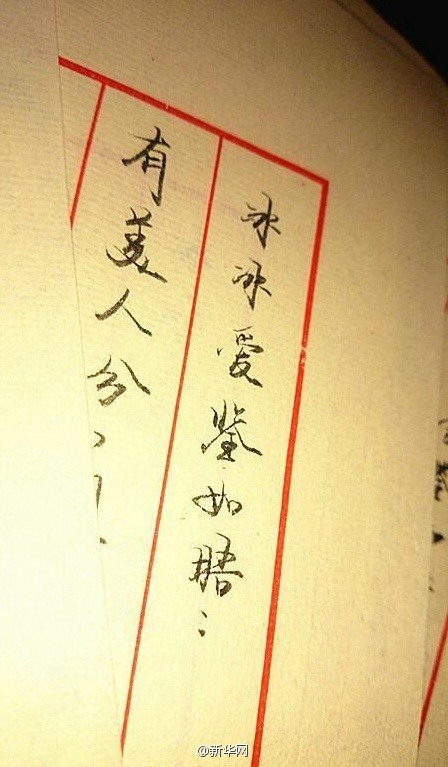 冰冰爱鉴如晤：
有美人兮
@新华网